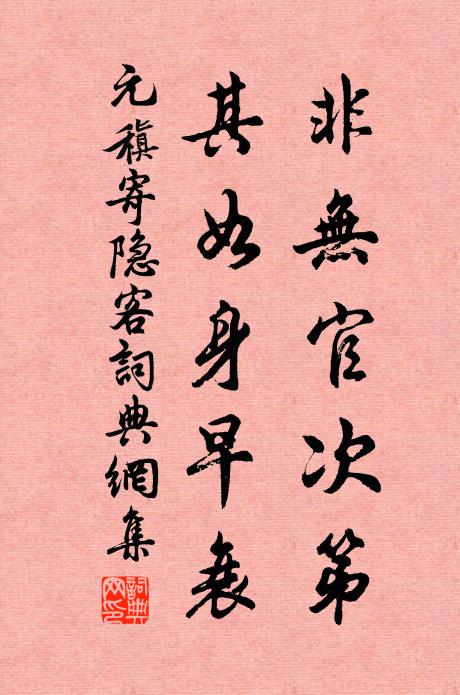 非無官次第
其如身早衰
元稹寄隐客詞典網集
詞典网印